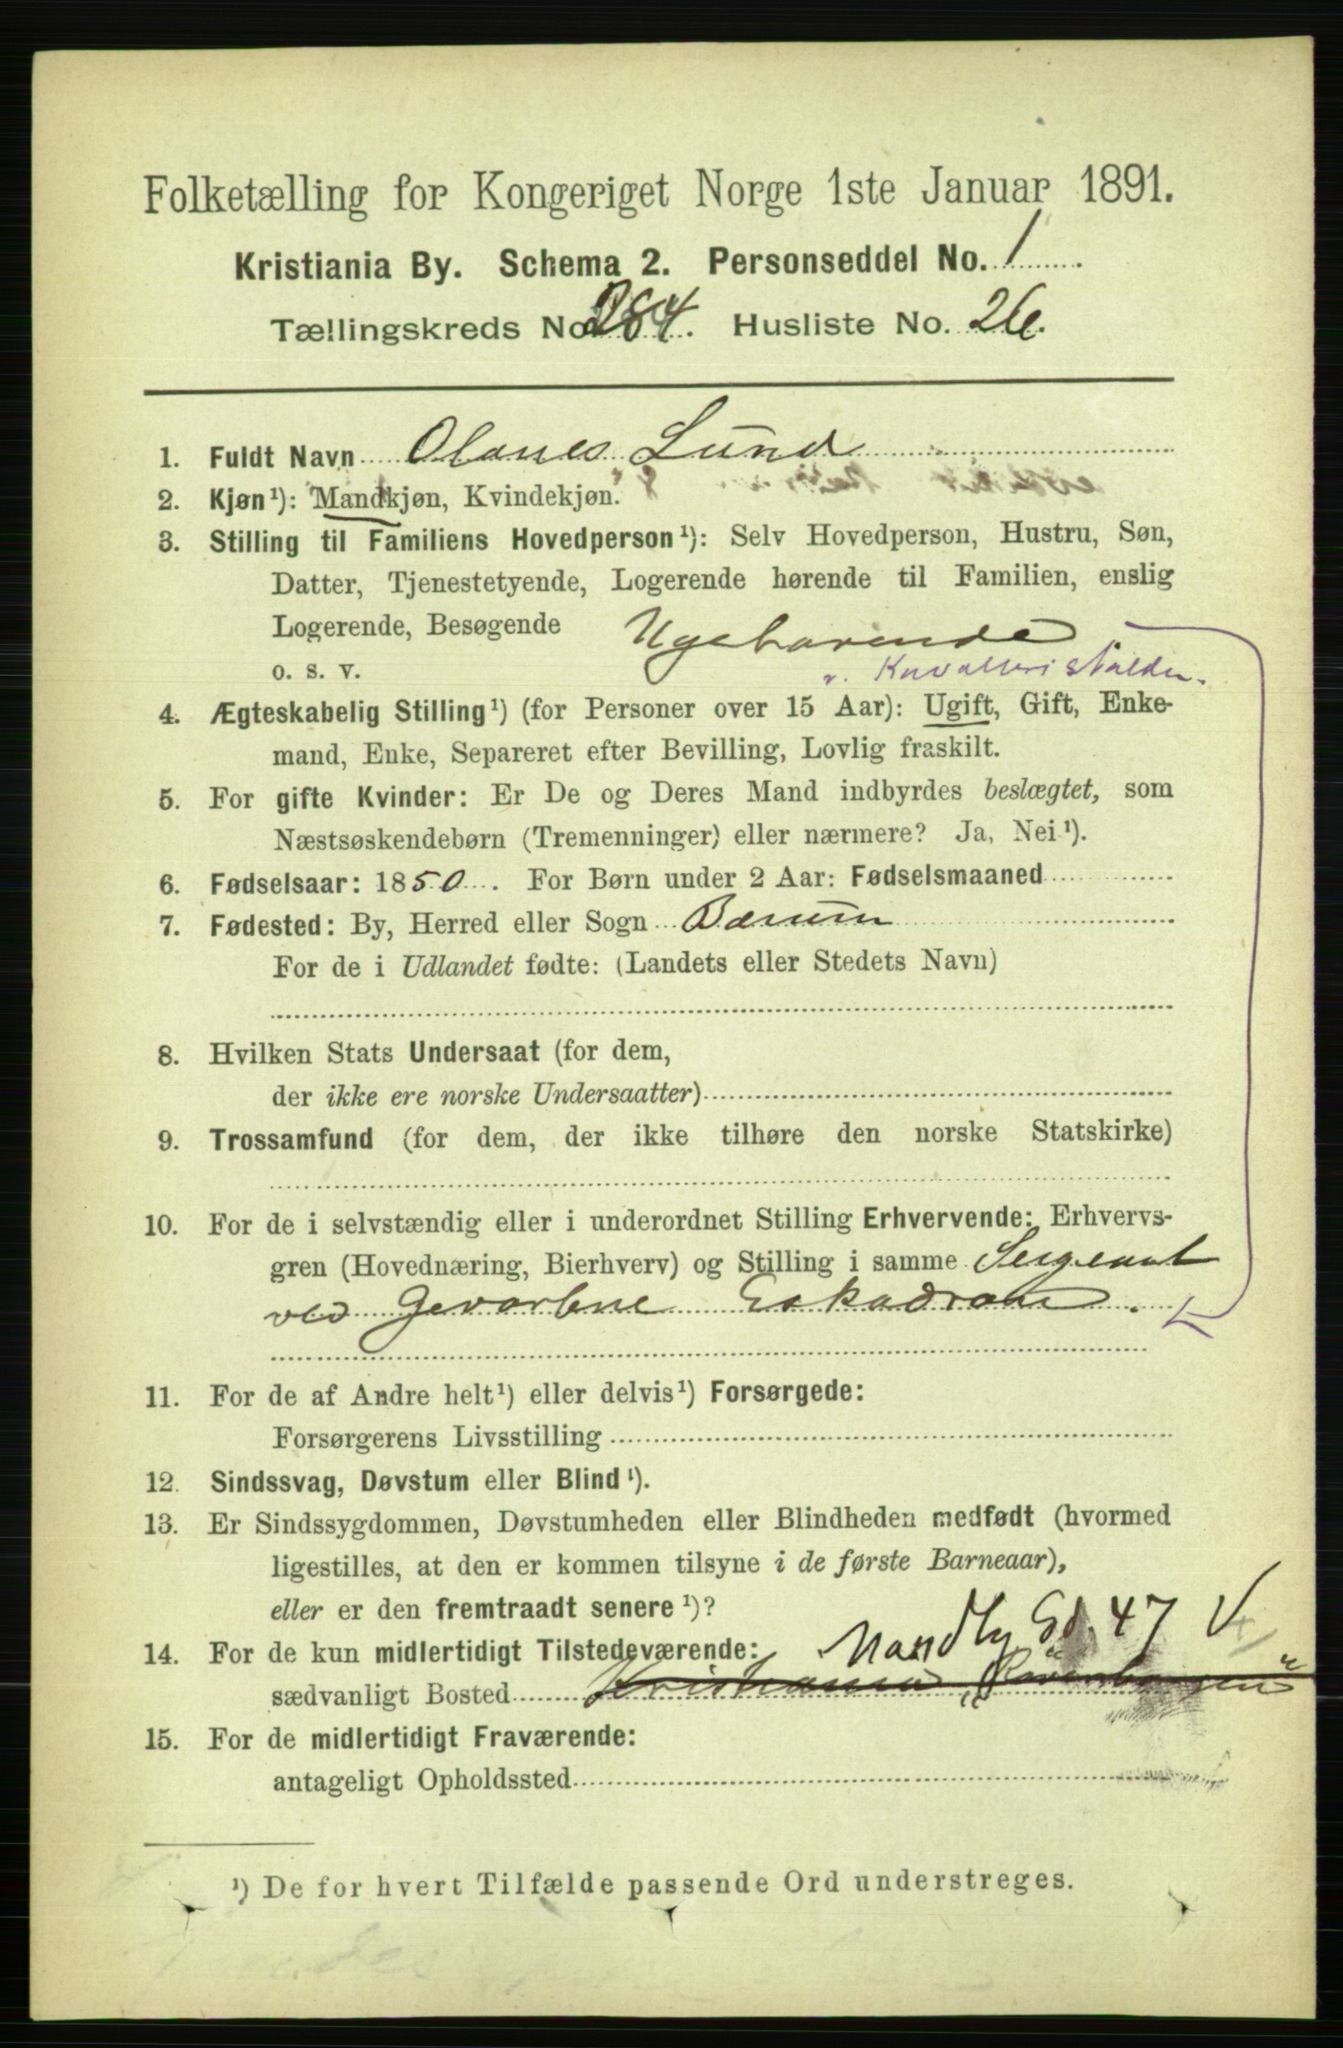 Folketælling for Kongeriget Norge 1ste Januar 1891.
Kristiania By. Schema 2. Personseddel No. 1
Tællingskreds No. 284. Husliste No. 26.
1. Fuldt Navn Olaues Lund
2. Kjøn¹): Mandkjøn, Kvindekjøn.
3. Stilling til Familiens Hovedperson¹): Selv Hovedperson, Hustru, Søn,
Datter, Tjenestetyende, Logerende hørende til Familien, enslig
Logerende, Besøgende Ugehavende
o. s. v. v. Kavalleristalden.
4. Ægteskabelig Stilling¹) (for Personer over 15 Aar): Ugift, Gift, Enke-
mand, Enke, Separeret efter Bevilling, Lovlig fraskilt.
5. For gifte Kvinder: Er De og Deres Mand indbyrdes beslægtet, som
Næstsøskendebørn (Tremenninger) eller nærmere? Ja, Nei¹).
6. Fødselsaar: 1850. For Børn under 2 Aar: Fødselsmaaned
7. Fødested: By, Herred eller Sogn Bærum
For de i Udlandet fødte: (Landets eller Stedets Navn)
8. Hvilken Stats Undersaat (for dem,
der ikke ere norske Undersaatter)
9. Trossamfund (for dem, der ikke tilhøre den norske Statskirke)
10. For de i selvstændig eller i underordnet Stilling Erhvervende: Erhvervs-
gren (Hovednæring, Bierhverv) og Stilling i samme Sergeant
ved Gevorbne Eskadron.
11. For de af Andre helt¹) eller delvis¹) Forsørgede:
Forsørgerens Livsstilling
12. Sindssvag, Døvstum eller Blind¹).
13. Er Sindssygdommen, Døvstumheden eller Blindheden medfødt (hvormed
ligestilles, at den er kommen tilsyne i de første Barneaar),
eller er den fremtraadt senere¹)?
14. For de kun midlertidigt Tilstedeværende: 47 V
sædvanligt Bosted Kristiania
15. For de midlertidigt Fraværende:
antageligt Opholdssted
¹) De for hvert Tilfælde passende Ord understreges.